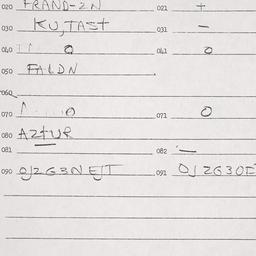 020 FRAND-2N 021 +
030 KU,TAST 031 -
040 11 0 041 0
050 FALDN
060
070 1 . 0 071 0
080 AZtUR
081 082 -
090 0J2G3NEJT 091 0J2G30E